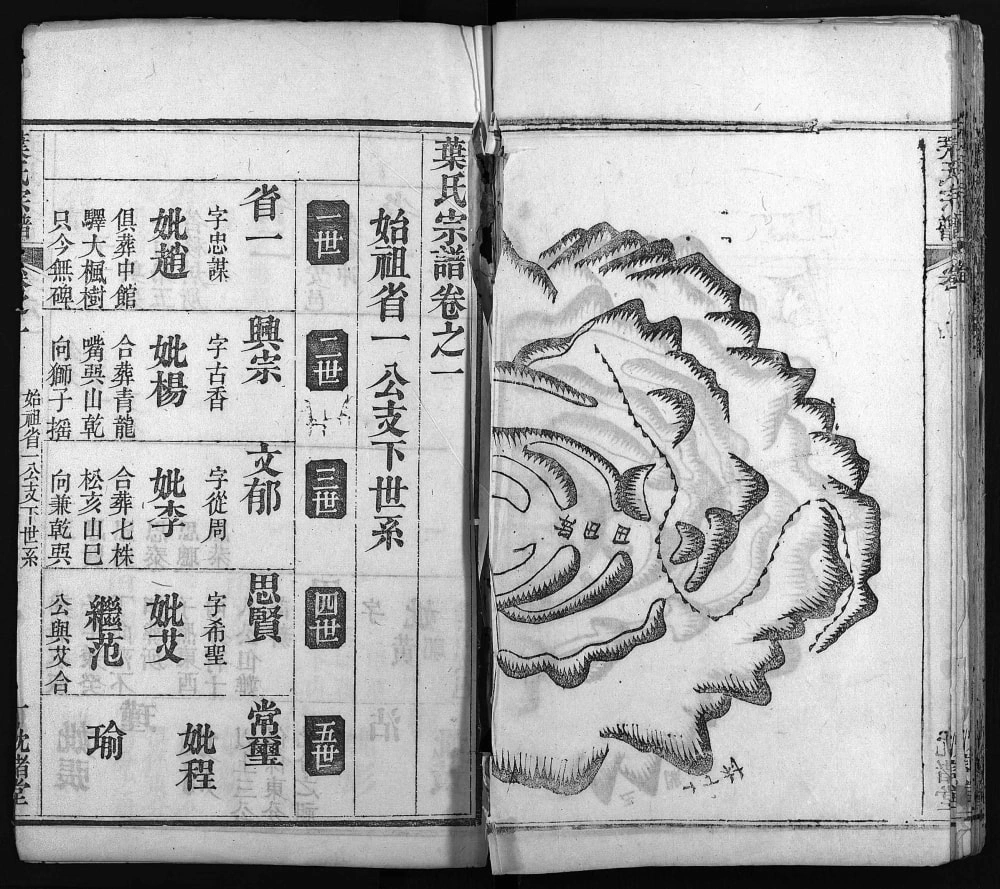 葉氏宗譜卷之一
始祖省一公支下世系
一世
二世
三世
四世
五世
省一
字忠謀
妣趙
俱葬中館
驛大楓樹
只今無碑
興宗
字古香
妣楊
合葬青龍
嘴巽山乾
向獅子搖
文郁
字從周
妣李
合葬七株
松亥山巳
向兼乾巽
思賢
字希聖
妣艾
繼范
公與艾合
常璽
妣程
瑜
葉氏宗譜
卷之一
始祖省一公支下世系
堂
葉氏宗譜
堂